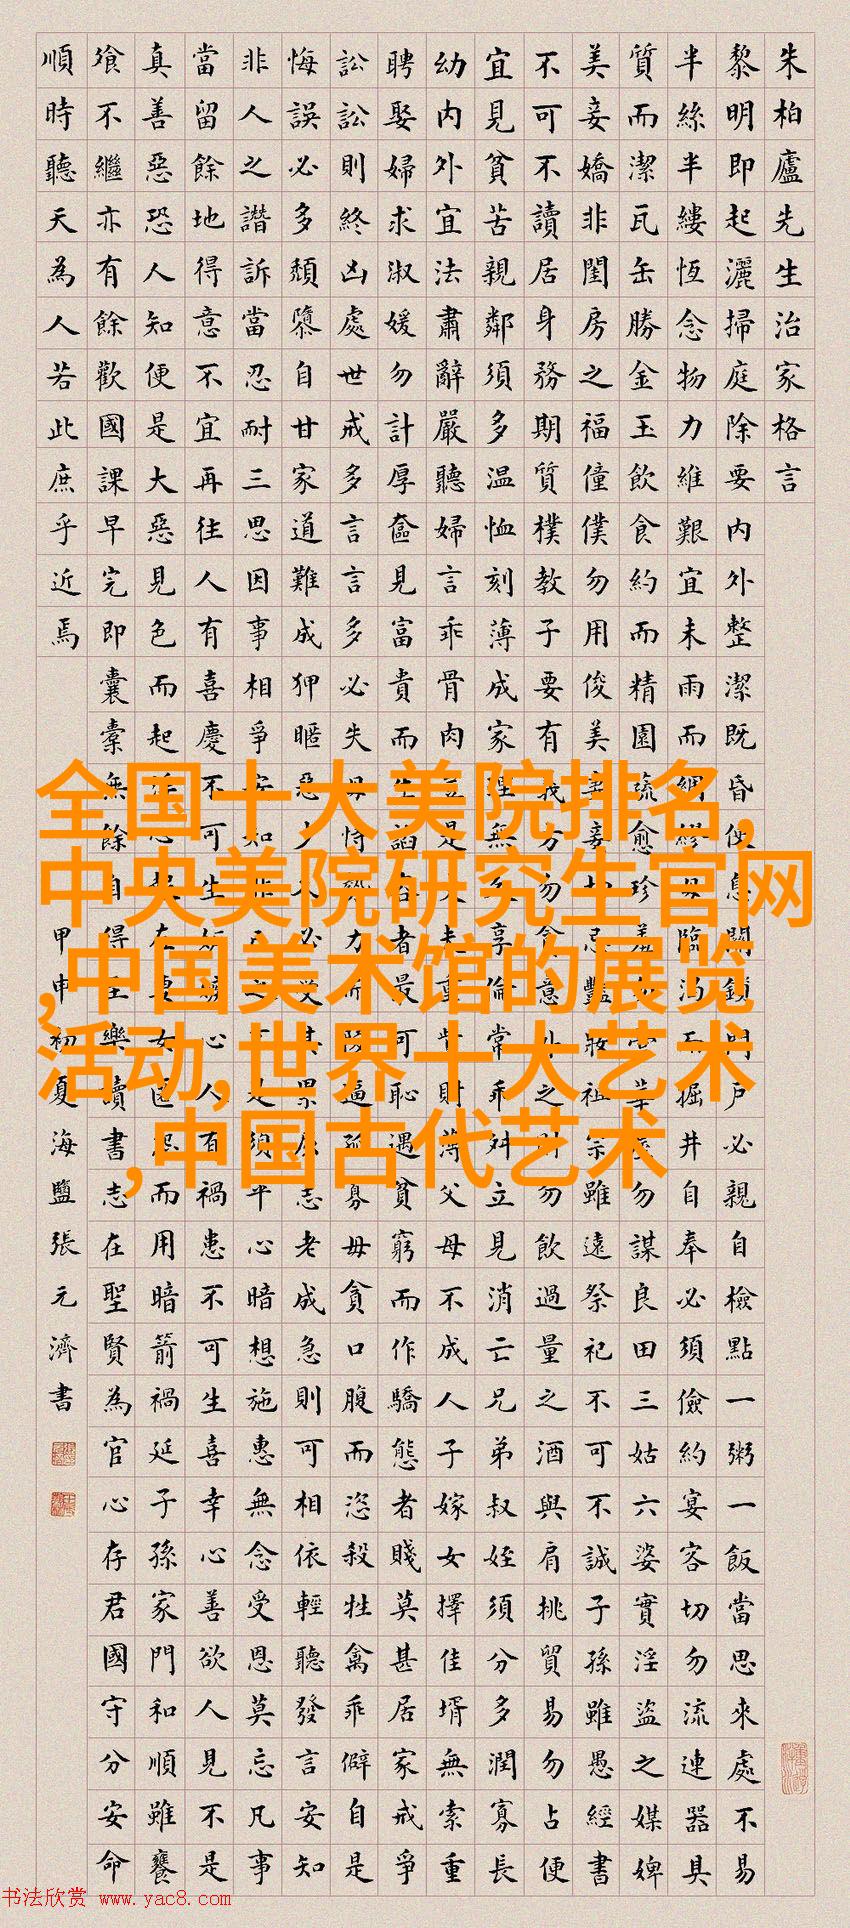 朱柏廬先生治家格言
黎明即起灑掃庭除要內外整潔既昏便息關鎖門戶必親自檢點一粥一飯當思來處不易
半絲半縷恆念物力維艱宜未雨而綢繆毋臨渴而掘井自奉必須儉約宴客切勿流連器具
質而潔瓦缶勝金玉飲食約而精園蔬愈珍羞勿營華屋勿謀良田三姑六婆實淫盜之媒婢
美妾嬌非閨房之福僮僕勿用俊美妻妾切忌艷妝祖宗雖遠祭祀不可不誠子孫雖愚經書
不可不讀居身務期質樸教子要有義方勿貪意外之財勿飲過量之酒與肩挑貿易勿占便
宜見貧苦親鄰須多溫恤刻薄成家理無久享倫常乖舛立見消亡兄弟叔姪須分多潤寡長
幼內外宜法肅辭嚴聽婦言乖骨肉豈是丈夫重貲財薄父母不成人子嫁女擇佳壻無索重
聘娶婦求淑媛勿計厚奩見富貴而生諂容者最可恥遇貧窮而作驕態者賤莫甚居家戒爭
訟訟則終凶處世戒多言言多必失毋恃勢力而凌逼孤寡毋貪口腹而恣殺牲禽乖僻自是
悔誤必多頹隳自甘家道難成狎暱惡少久必受其累屈志老成急則可相依輕聽發言安知
非人之譖訴當忍耐三思因事相爭安知非我之不是須平心暗想施惠無念受恩莫忘凡事
當留餘地得意不宜再往人有喜慶不可生妒嫉心人有禍患不可生喜幸心善欲人見不是
真善惡恐人知便是大惡見色而起淫心報在妻女匿怨而用暗箭禍延子孫家門和順雖饔
飧不繼亦有餘歡國課早完即囊橐無餘自得至樂讀書志在聖賢為官心存君國守分安命
順時聽天為人若此庶乎近焉
甲申初夏海鹽張元濟書
全国十大美院排名,
中央美院研究生官网
,中国美术馆的展览
活动,世界十大艺术
,中国古代艺术
书法欣赏 www.yac8.com